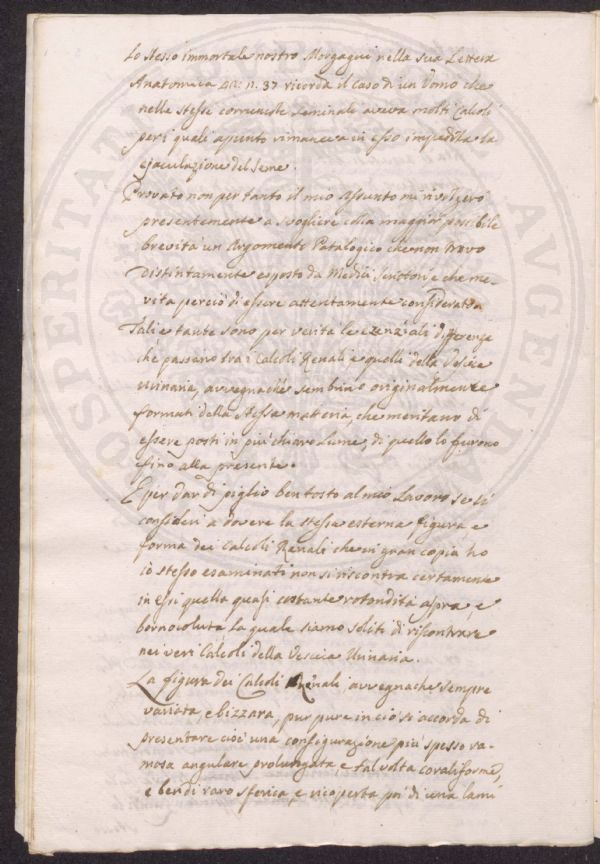 Lo stesso immortale nostro Morgagni nella sua Lettera
Anatomica 42. n. 37 ricorda il caso di un Uomo che
nelle stesse Seminali aveva molti Calcoli
per i quali apunto rimaneva in esso impedita la
ejaculazione del seme.
Provato non per tanto il mio Assunto mi rivolgerò
presentemente a svogliere colla maggior possibile
brevità un Argomento Patalogico che non trovo
distintamente esposto da Medici Scrittori e che me-
rita perciò di essere attentamente considerato
Tali e tante sono per verità le essenziali differenze
che passano tra i Calcoli Renali e quelli della Vescica
Urinaria, avvegnachè sembrino originalmente
formati della stessa materia, che meritano di
essere posti in più chiaro Lume, di quello lo furono
fino alla presente.
E per dar di piglio ben tosto al mio Lavoro se si
consideri a dovere la stessa esterna figura, e
forma dei Calcoli Renali che in gran copia ho
io stesso esaminati non si riscontra certamente
in essi quella quasi costante rotondità aspra, e
bernocoluta, la quale siamo soliti di riscontrare
nei veri Calcoli della Vescica Urinaria.
La figura dei Calcoli Renali, avvegnache sempre
variata, e bizzara, pur pure in ciò si accorda di
presentare cioè una configurazione più spesso ra-
mosa angulare prolungata, e talvolta coraliforme,
e ben di raro sferica, e ricoperta poi di una lami
PROSPERITATI
AVGENDAE